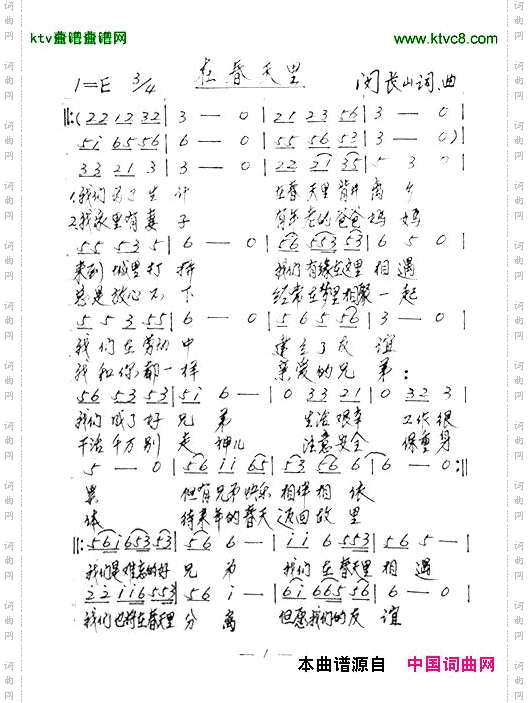 ktv歌谱歌谱网
www.ktvc8.com
在春天里
1=E 3/4
闵长山词、曲
‖:(22 12 32 | 3 — 0 | 21 23 56 | 3 — 0 |
5i 65 56 | 6 — 0 | 55 56 53 | 3 — 0) |
33 21 3 | 3 — 0 | 22 21 35 | 5 3 0 |
1.我们为了生计 在春天里背井离乡
2.我家里有妻子 有年老的爸爸妈妈
55 53 5 | 6 — 0 | 56 553 53 | 6 5 0 |
来到城里打拼 我们有缘在这里相遇
总是放心不下 经常在梦里相聚一起
5 5 3 55 | 6 — 0 | 56 5 56 | 3 — 0 |
我们在劳动中 建立了友谊
我和你都一样 亲爱的兄弟:
56 53 53 | 5i 6 — | 0 33 21 | 0 32 3 |
我们成了好兄弟 生活艰辛 工作很
干活千万别走神儿 注意安全 保重身
5 — 0 | 56 ii 65 | 53 56 6 | 6 — 0 :‖
累 但有兄弟快乐相伴相依
体 待来年的春天返回故里
‖: 56 i6 53 53 | 56 6 — | ii 6 553 | 56 5 — |
我们是难忘的好兄弟 我们在春天里相遇
22 ii6 553 | 56 i — | 6i 665 56 | 6 6 — |
我们也将在春天里分离 但愿我们的友谊
— 1 —
本曲谱源自 中国词曲网
词曲网